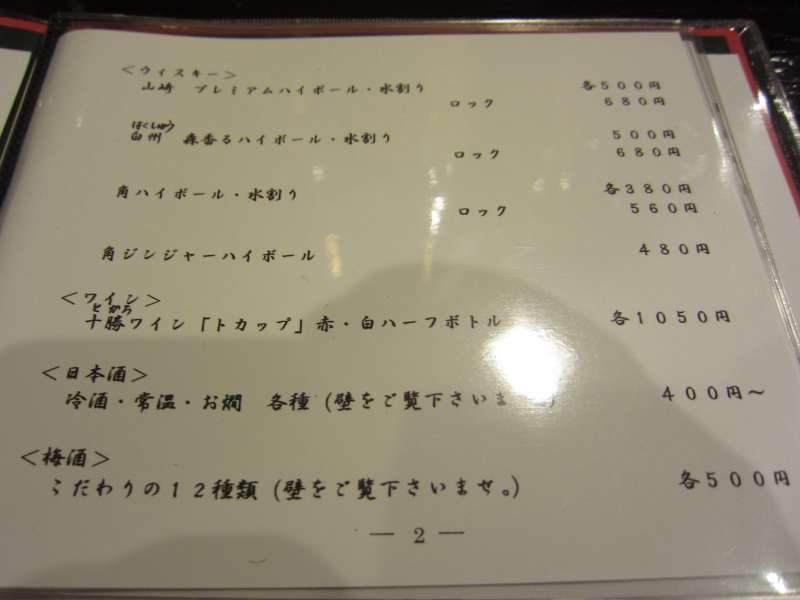 ＜ウィスキー＞
山崎　プレミアムハイボール・水割り　各５００円
ロック　６８０円
はくしゅう
白州　森香るハイボール・水割り　５００円
ロック　６８０円
角ハイボール・水割り　各３８０円
ロック　５６０円
角ジンジャーハイボール　４８０円
＜ワイン＞
とかち
十勝ワイン「トカップ」赤・白ハーフボトル　各１０５０円
＜日本酒＞
冷酒・常温・お燗　各種（壁をご覧下さいま　４００円～
＜梅酒＞
こだわりの１２種類（壁をご覧下さいませ。）　各５００円
— 2 —